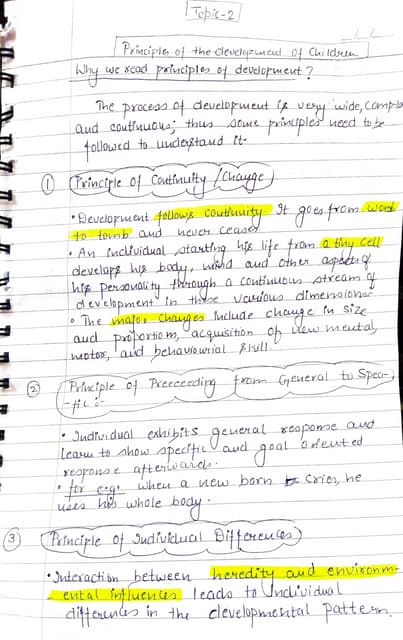 Topic-2
Principles of the development of Children
Why we read principles of development?
The process of development is very wide, comple
and continuous; thus some principles need to be
followed to understand it.
① Principle of Continuity/Change
• Development follows continuity It goes from womb
to tomb and never ceases
• An individual starting his life from a tiny cell
develops his body, mind and other aspects of
his personality through a continuous stream of
development in these various dimensions
• The major changes include change in size
and proportion, acquisition of new mental,
motor, and behaviourial skill.
② Principle of Preeceeding from General to Speci-
-fic :-
• Individual exhibits general response and
learn to show specific and goal oriented
response afterwards.
• for e.g. when a new born cries, he
uses his whole body.
③ Principle of Individual Differences
• Interaction between heredity and environm-
-ental influences leads to Individual
differences in the developmental pattern.